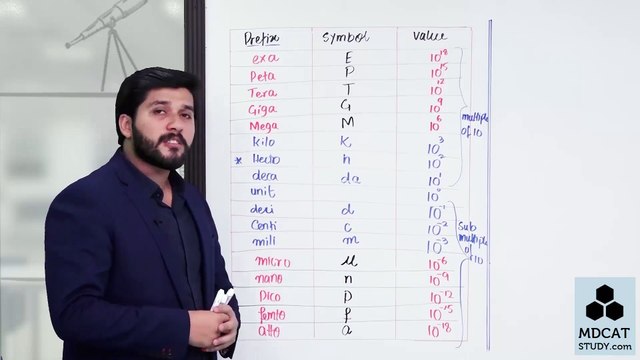 Prefix Symbol Value
exa E 10¹⁸
Peta P 10¹⁵
Tera T 10¹²
Giga G 10⁹
Mega M 10⁶
Kilo K 10³
* Hecto h 10²
deca da 10¹
unit 10⁰
deci d 10⁻¹
Centi c 10⁻²
mili m 10⁻³
micro μ 10⁻⁶
nano n 10⁻⁹
Pico P 10⁻¹²
femto f 10⁻¹⁵
atto a 10⁻¹⁸
multiple
of 10
Sub
multiple
of 10
MDCAT
STUDY.com